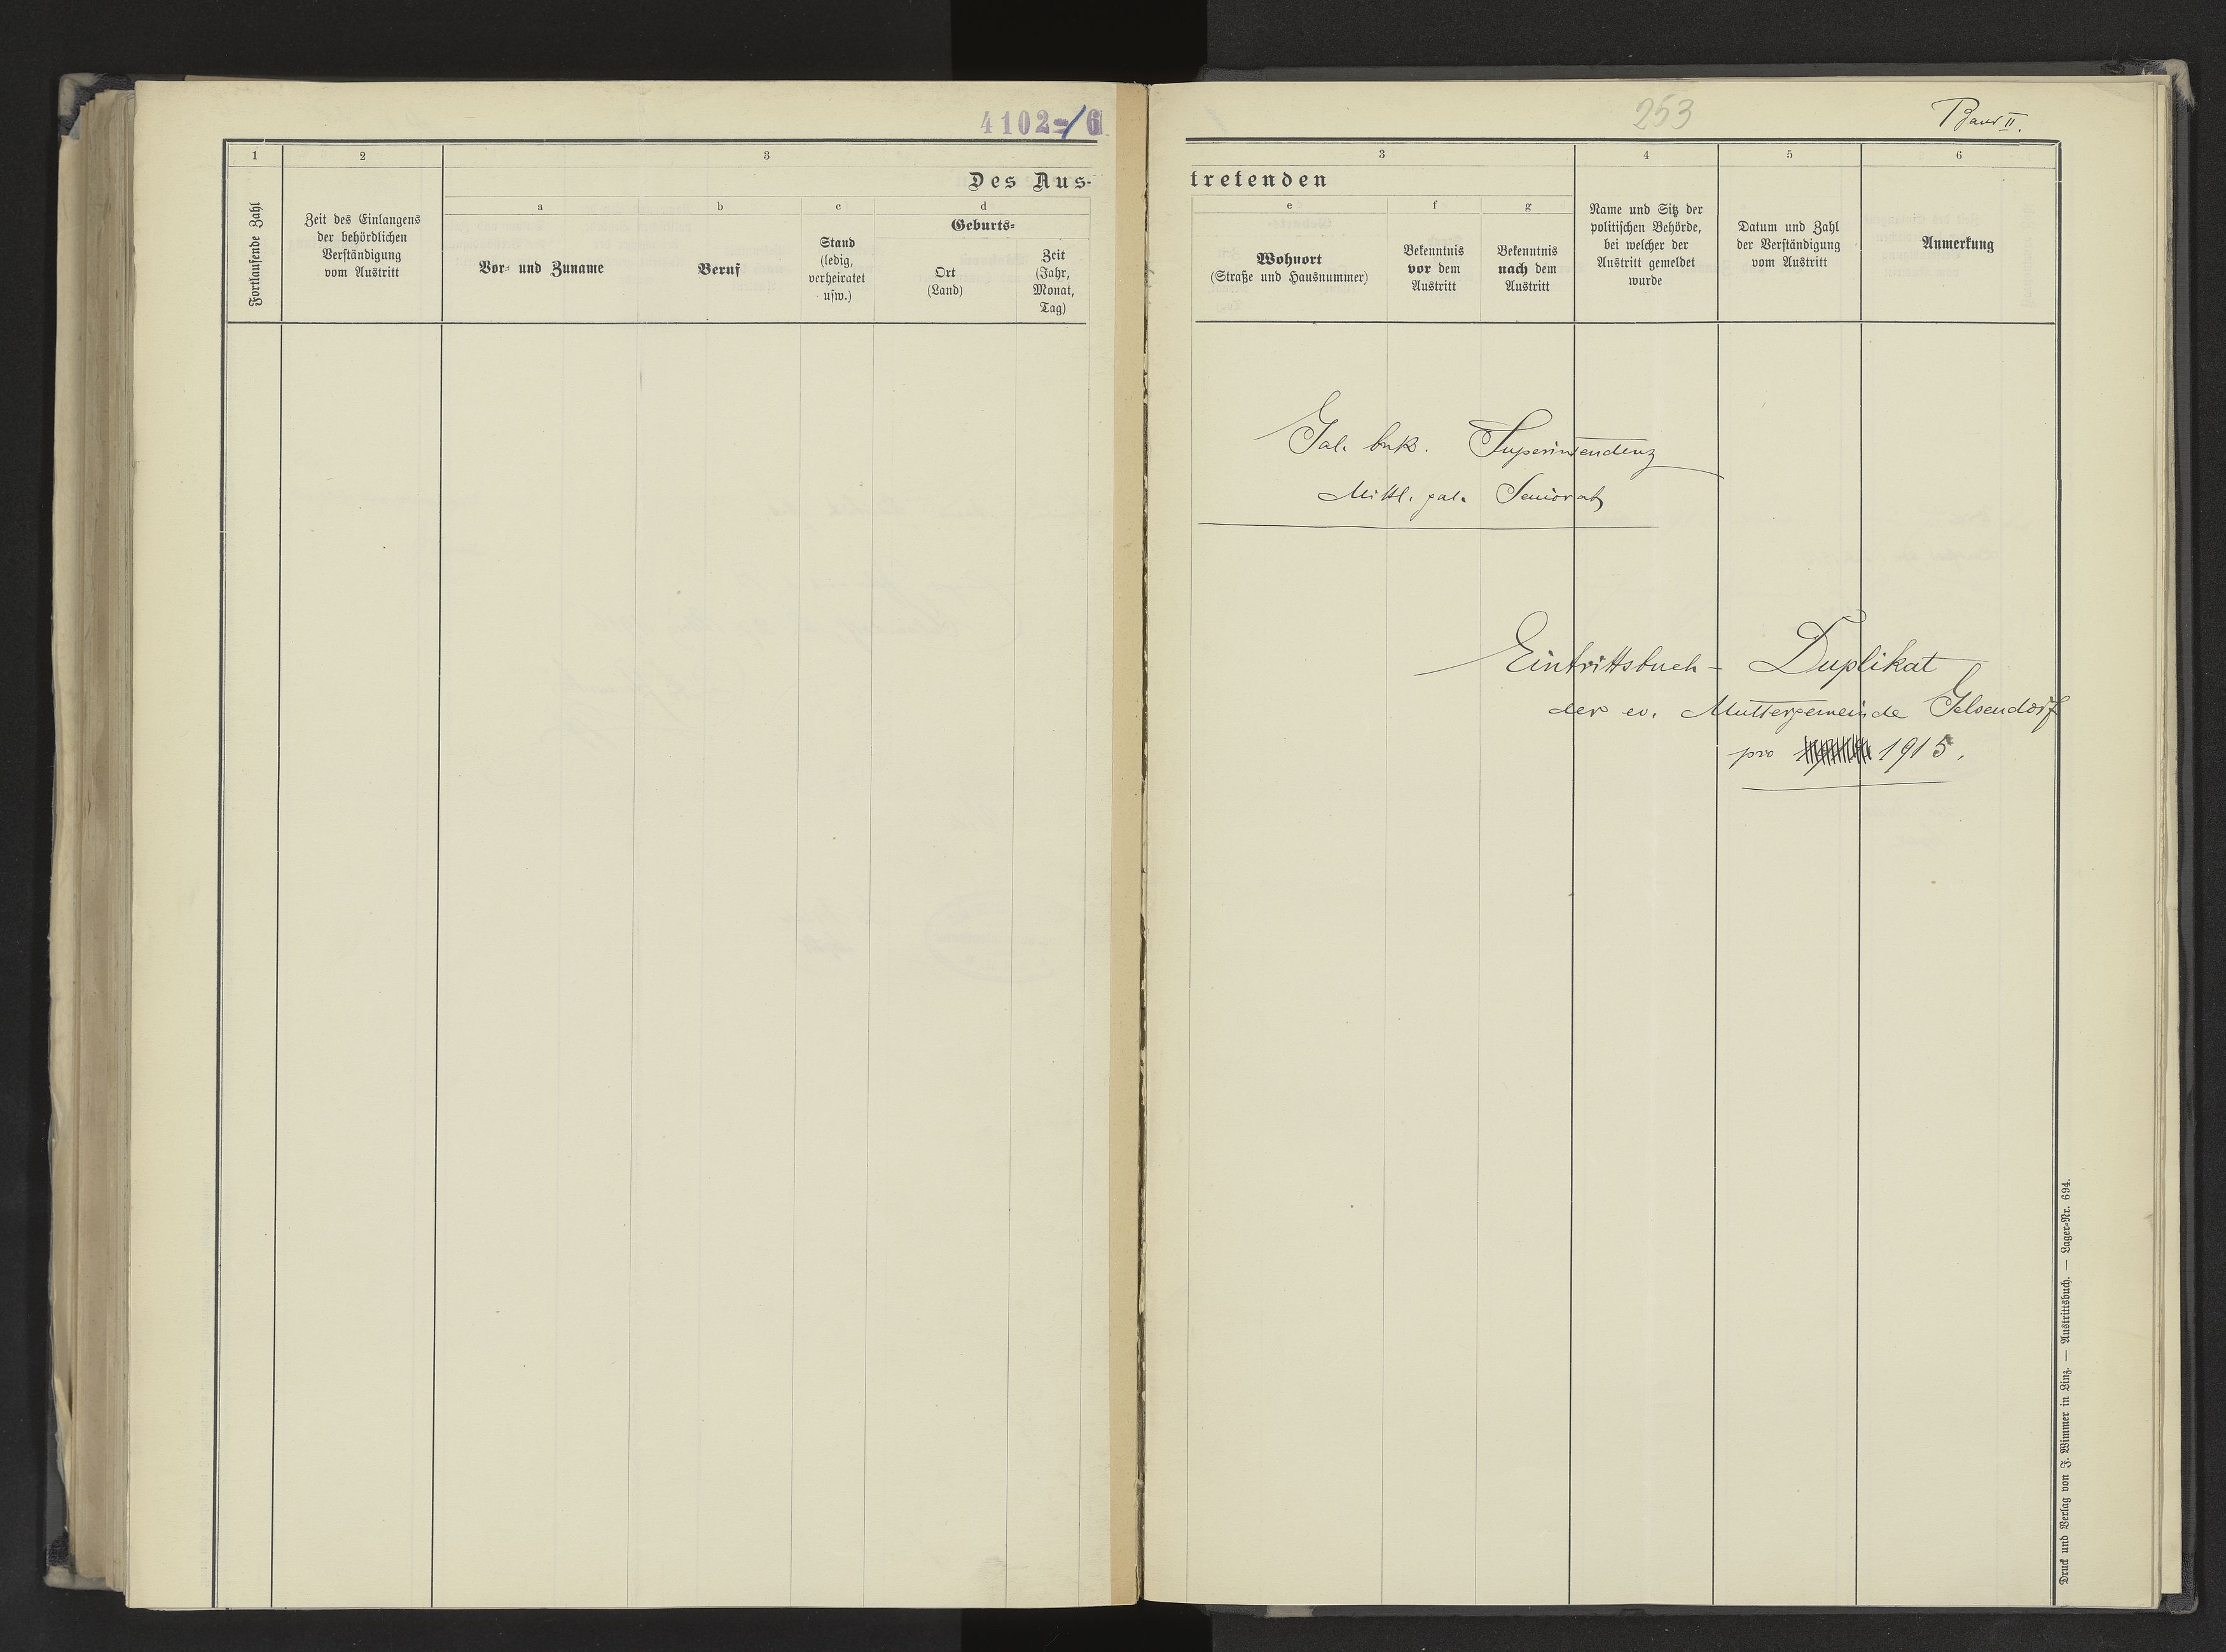 4102=/6
1
2
3
Des Aus-
Fortlaufende Zahl
Zeit des Einlangens
der behördlichen
Verständigung
vom Austritt
a
Vor- und Zuname
b
Beruf
c
Stand
(ledig,
verheiratet
usw.)
d
Geburts-
Ort
(Land)
Zeit
(Jahr,
Monat,
Tag)
253
Band II.
3
4
5
6
tretenden
e
Wohnort
(Straße und Hausnummer)
f
Bekenntnis
vor dem
Austritt
g
Bekenntnis
nach dem
Austritt
Name und Sitz der
politischen Behörde,
bei welcher der
Austritt gemeldet
wurde
Datum und Zahl
der Verständigung
vom Austritt
Anmerkung
Gal. buk. Superintendenz
Mittl. gal. Seniorat
Eintrittsbuch - Duplikat
der ev. Muttergemeinde Gelsendorf
pro 1915.
Druck und Verlag von F. Wimmer in Linz. — Austrittsbuch. — Lager-Nr. 694.